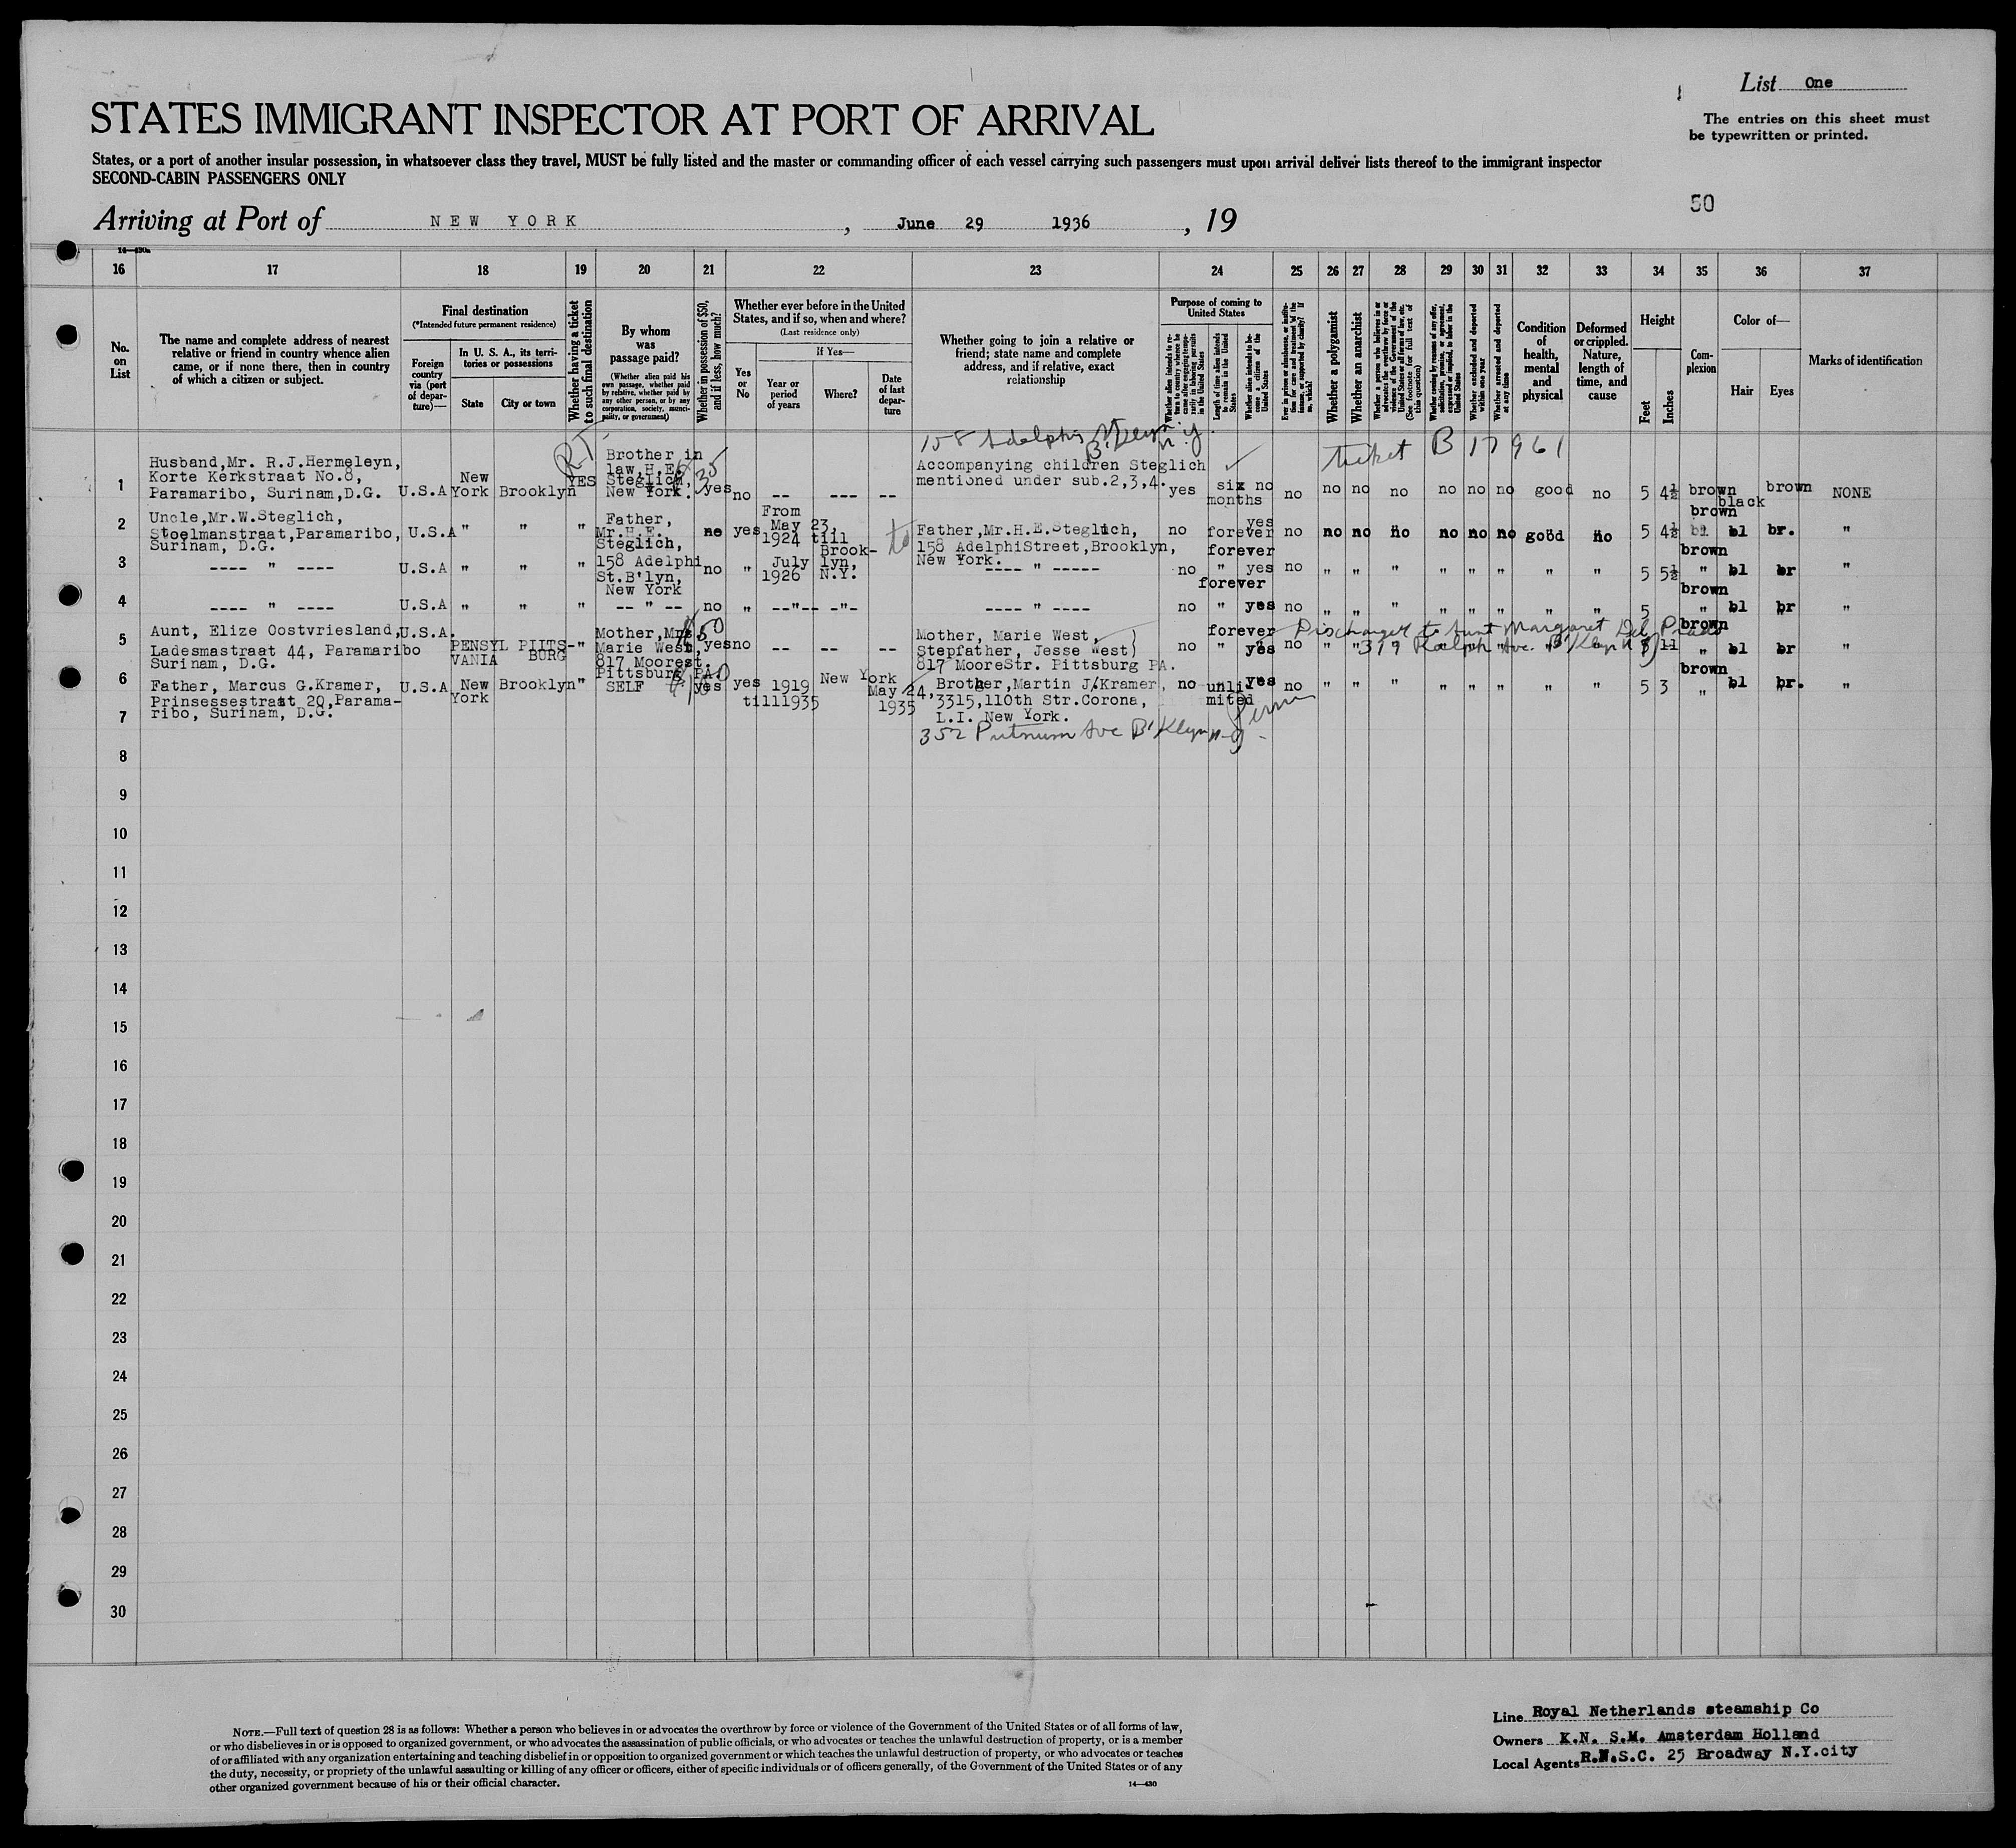 List One
The entries on this sheet must
be typewritten or printed.
STATES IMMIGRANT INSPECTOR AT PORT OF ARRIVAL
States, or a port of another insular possession, in whatsoever class they travel, MUST be fully listed and the master or commanding officer of each vessel carrying such passengers must upon arrival deliver lists thereof to the immigrant inspector
SECOND-CABIN PASSENGERS ONLY
50
Arriving at Port of NEW YORK , June 29 1936 , 19
16 17 18 19 20 21 22 23 24 25 26 27 28 29 30 31 32 33 34 35 36 37
No. on List
The name and complete address of nearest relative or friend in country whence alien came, or if none there, then in country of which a citizen or subject.
Final destination
(*Intended future permanent residence)
Foreign country via (port of departure)—
In U. S. A., its territories or possessions
State
City or town
Whether having a ticket to such final destination
By whom was passage paid?
(Whether alien paid his own passage, whether paid by relative, whether paid by any other person, or by any corporation, society, municipality, or government)
Whether in possession of $50, and if less, how much?
Whether ever before in the United States, and if so, when and where?
(Last residence only)
Yes or No
If Yes—
Year or period of years
Where?
Date of last departure
Whether going to join a relative or friend; state name and complete address, and if relative, exact relationship
Purpose of coming to United States
Length of time alien intends to remain in the United States
Whether alien intends to become a citizen of the United States
Whether a polygamist
Whether an anarchist
(See footnote for full text of this question)
Whether excluded and deported within one year
Whether arrested and deported at any time
Condition of health, mental and physical
Deformed or crippled. Nature, length of time, and cause
Height
Feet
Inches
Complexion
Color of—
Hair
Eyes
Marks of identification
158 Adelphi St B'klyn N.Y.
ticket B 17961
R.T.
1 Husband,Mr. R.J.Hermeleyn,
Korte Kerkstraat No.8,
Paramaribo, Surinam,D.G. U.S.A New York Brooklyn YES
Brother in
law,H.E.
Steglich,
New York. 35 yes no -- --- --
Accompanying children Steglich
mentioned under sub.2,3,4. yes six months no no no no no no no no good no 5 4½ brown black brown NONE
2 Uncle,Mr.W.Steglich,
Stoelmanstraat,Paramaribo,
Surinam, D.G. U.S.A " " "
Father,
Mr.H.E.
Steglich,
158 Adelphi
St.B'lyn,
New York
no yes From
May 23,
1924 till
July
1926
Brook-
lyn,
N.Y.
to Father,Mr.H.E.Steglich,
158 AdelphiStreet,Brooklyn,
New York. no forever yes no no no no no no no good no 5 4½ brown bl br. "
3 ---- " ---- U.S.A " " " no " ---- " ----- no forever " yes no " " " " " " " " 5 5½ brown " bl br "
4 ---- " ---- U.S.A " " " -- " -- no " --"-- -"- ---- " ---- no forever " yes no " " " " " " " " 5 brown " bl br "
5 Aunt, Elize Oostvriesland,
Ladesmastraat 44, Paramaribo
Surinam, D.G. U.S.A. PENSYLVANIA PIITSBURG "
Mother,Mrs
Marie West,
817 Moorest.
Pittsburg PA. 50 yes no -- -- --
Mother, Marie West,
Stepfather, Jesse West)
817 MooreStr. Pittsburg PA. no forever " yes no " " " " " " " " 11 brown " bl br "
Discharged to Aunt Margaret Del Prado
379 Ralph Ave. B'klyn N.Y.
6 Father, Marcus G.Kramer,
Prinsessestraat 20,Parama-
ribo, Surinam, D.G. U.S.A New York Brooklyn " SELF yes yes 1919
till1935 New York May 24,
1935
Brother,Martin J.Kramer,
3315,110th Str.Corona,
L.I. New York. no unlimited yes no " " " " " " " " 5 3 brown " bl br. "
Perm
352 Putnum Ave B'Klyn N.Y.
7
8
9
10
11
12
13
14
15
16
17
18
19
20
21
22
23
24
25
26
27
28
29
30
NOTE.—Full text of question 28 is as follows: Whether a person who believes in or advocates the overthrow by force or violence of the Government of the United States or of all forms of law,
or who disbelieves in or is opposed to organized government, or who advocates the assassination of public officials, or who advocates or teaches the unlawful destruction of property, or is a member
of or affiliated with any organization entertaining and teaching disbelief in or opposition to organized government or which teaches the unlawful destruction of property, or who advocates or teaches
the duty, necessity, or propriety of the unlawful assaulting or killing of any officer or officers, either of specific individuals or of officers generally, of the Government of the United States or of any
other organized government because of his or their official character.
14—430
Line Royal Netherlands steamship Co
Owners K.N. S.M. Amsterdam Holland
Local Agents R.N.S.C. 25 Broadway N.Y.city